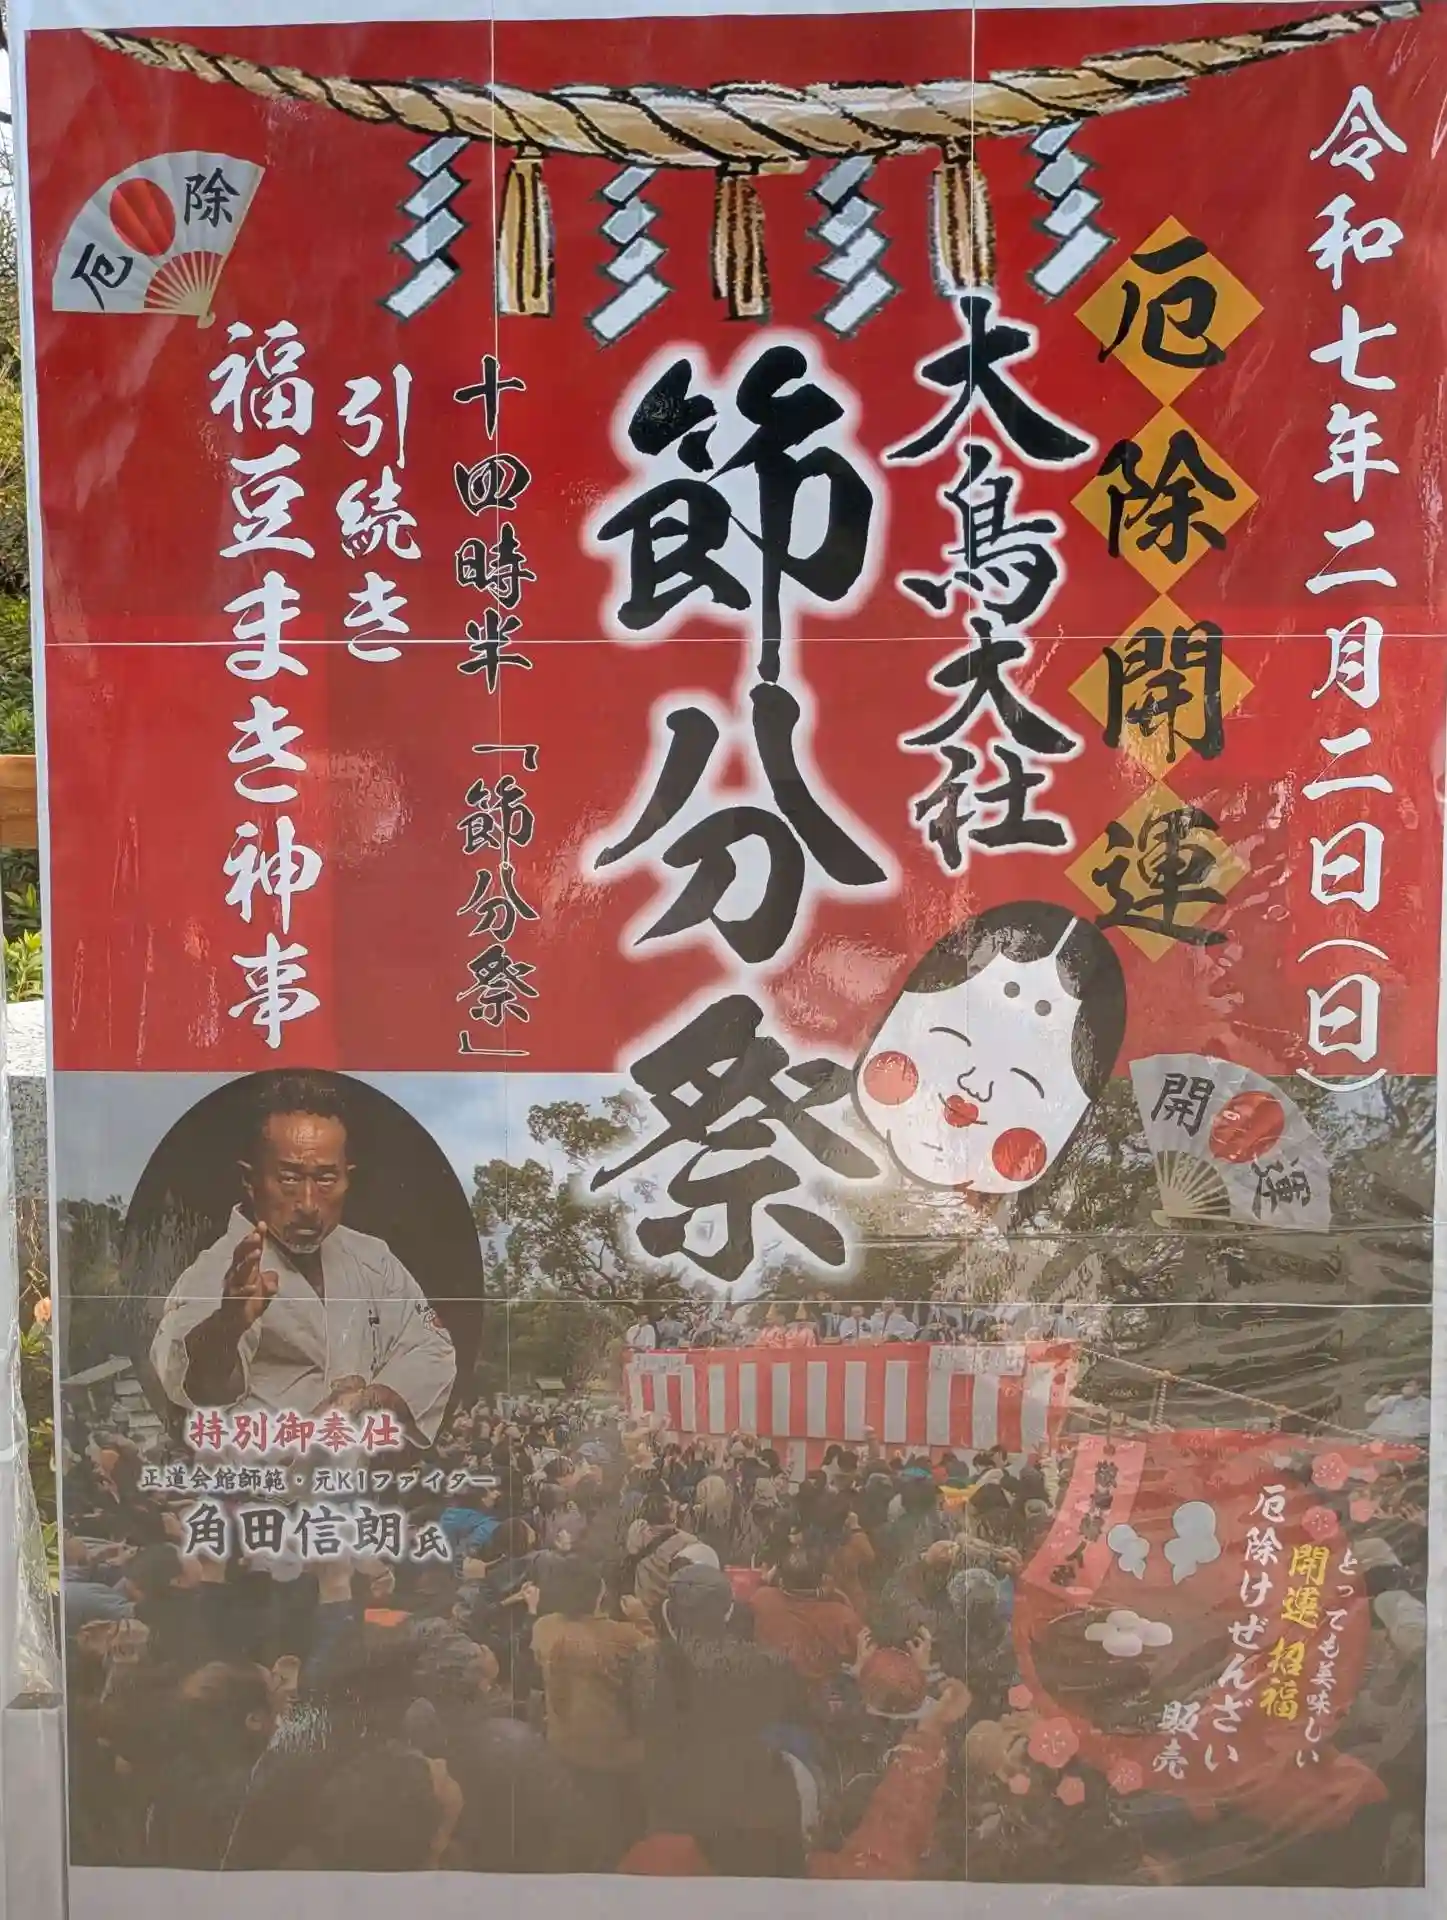 令和七年二月二日(日)
厄除開運
大鳥大社
節分祭
十四時半「節分祭」
引続き
福豆まき神事
厄除
開運
特別御奉仕
正道会館師範・元K1ファイター
角田信朗氏
とっても美味しい
開運 招福
厄除けぜんざい
販売